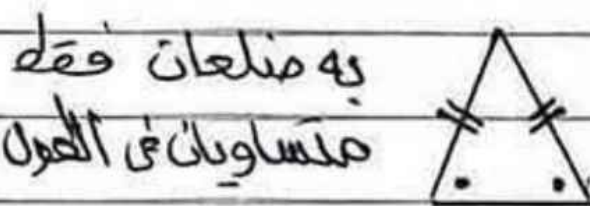 به ضلعان فقط
متساويان فى الطول